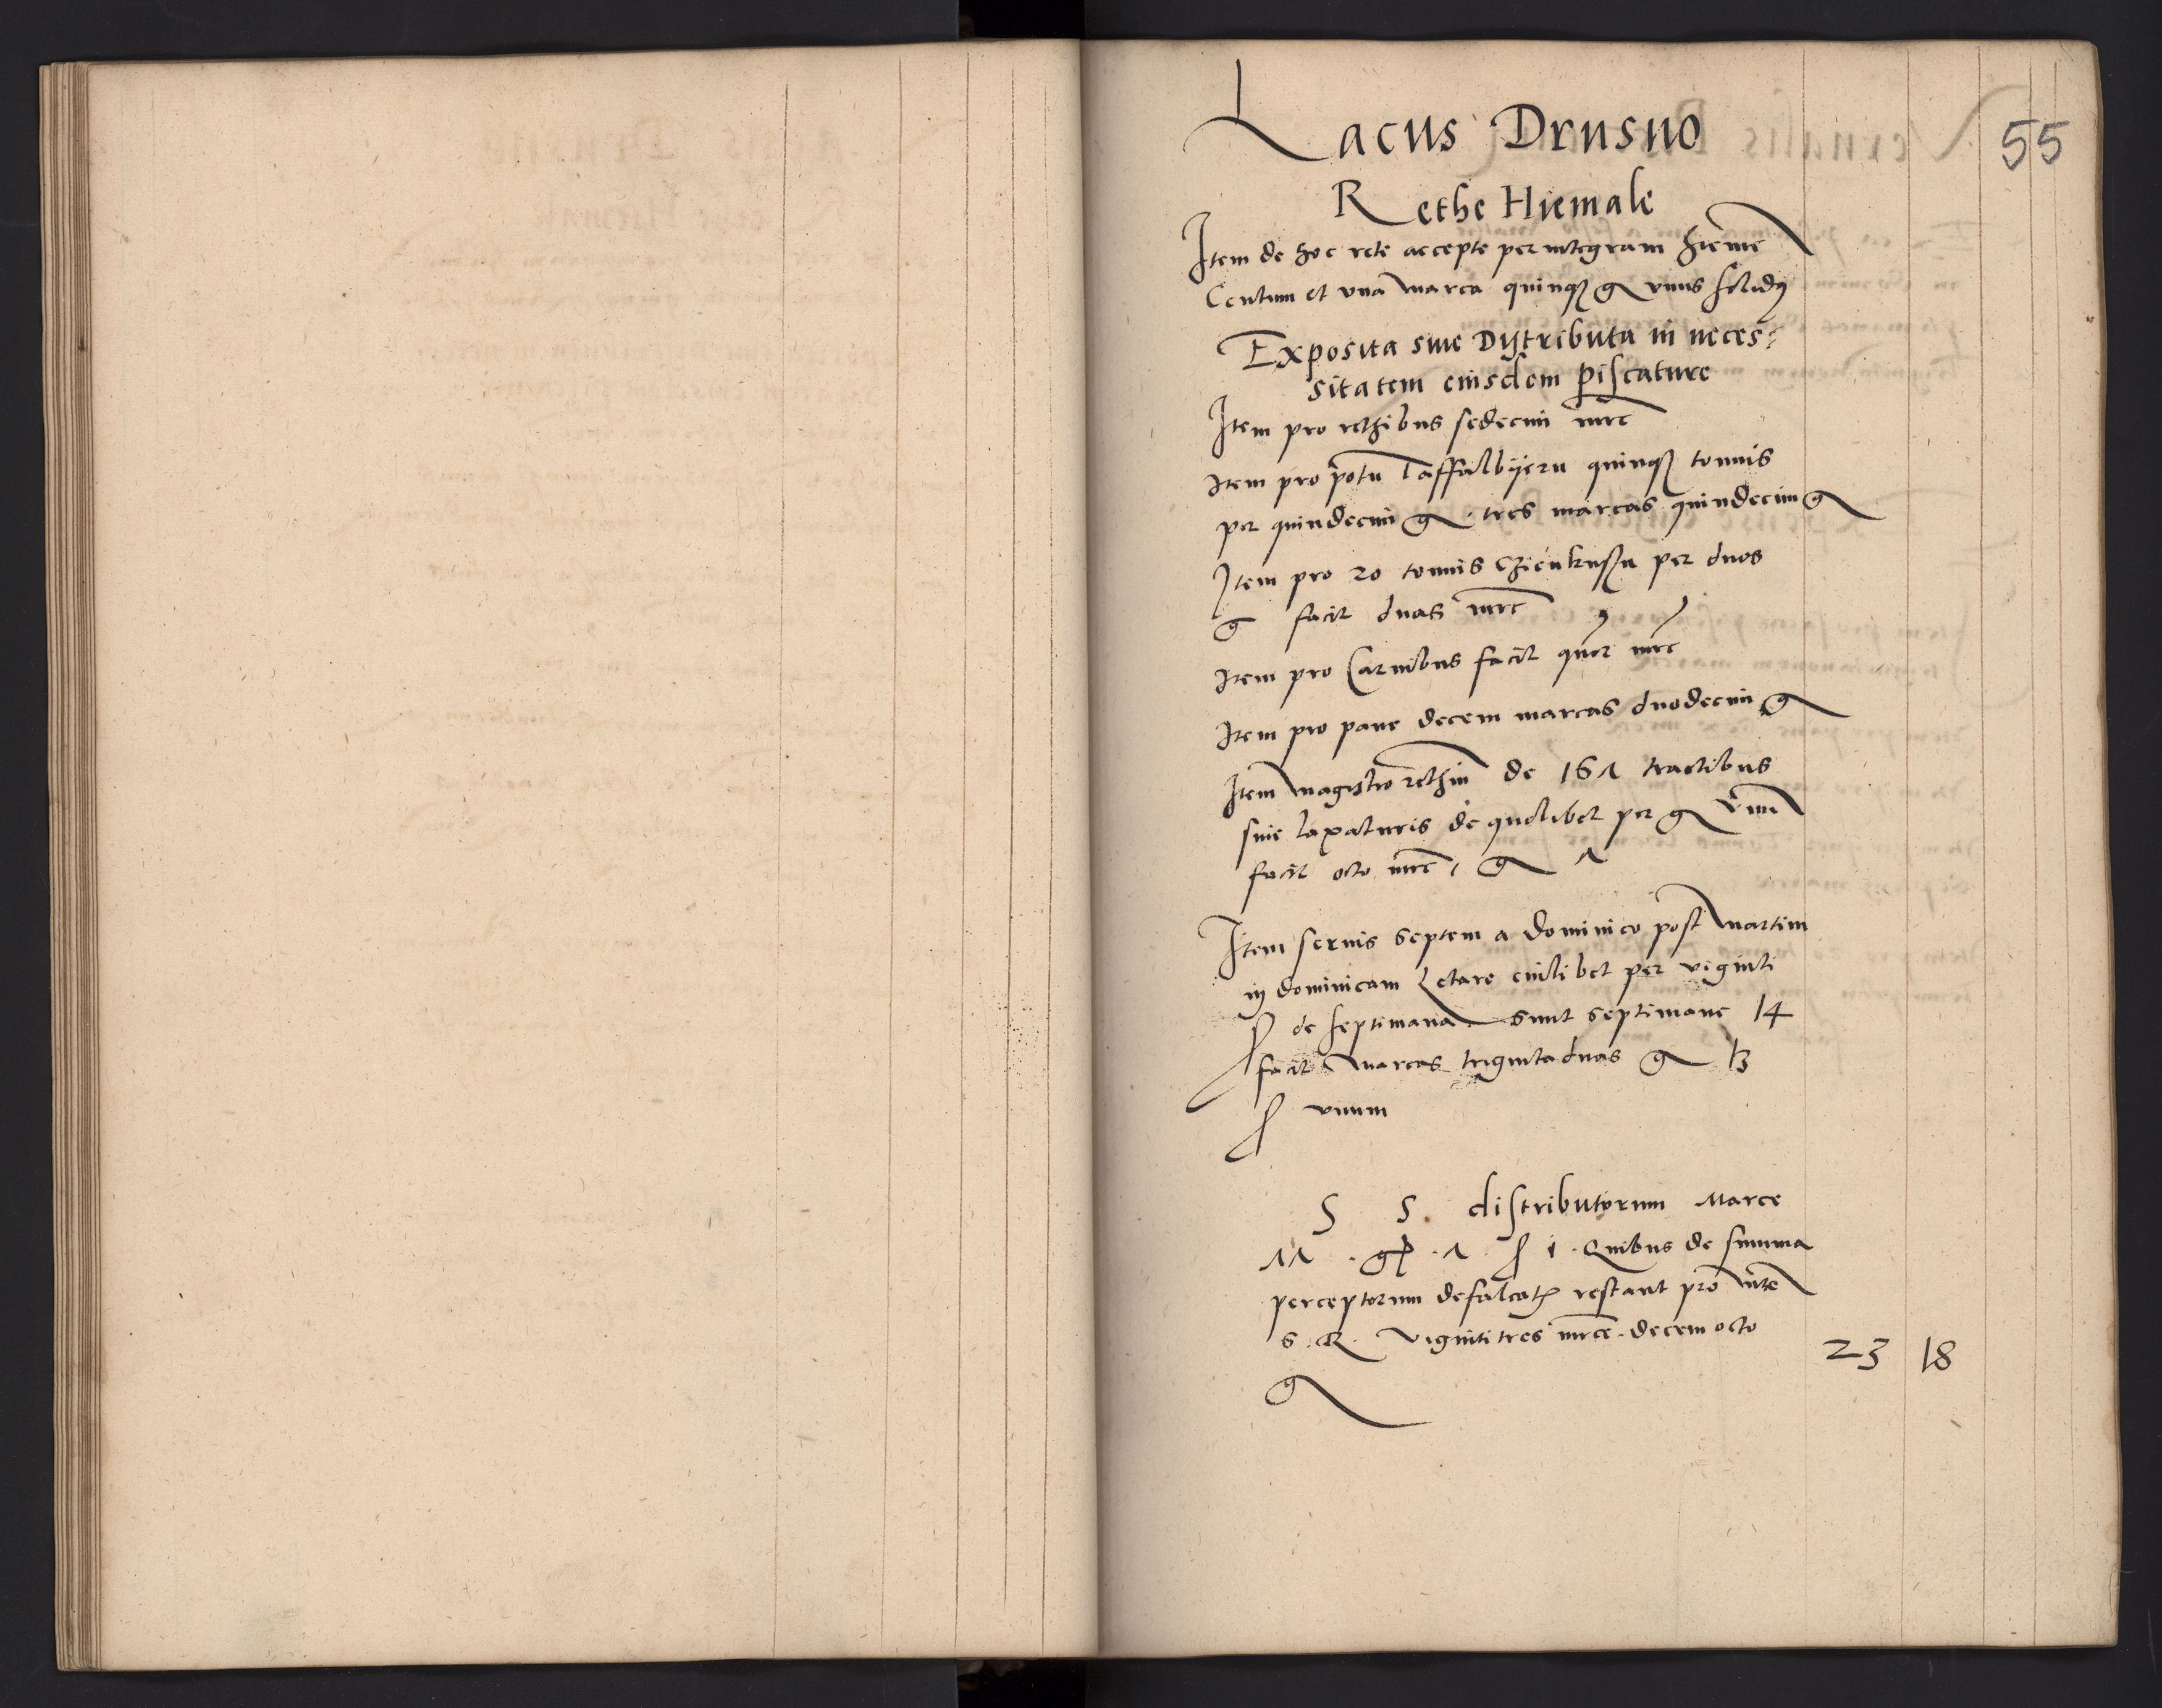 55
Lacus Drusno
Rethe Hiemale
Item de hoc rete accepte per integram hieme
Centum et una marca quinqȝ g unus solidꝫ
Exposita sive Distributa in neces:
sitatem eiusdem piscature
Item pro rethibus sedecim mrc
Item pro potu Taffalbijeru quinqȝ tonnis
per quindecim g tres marcas quindecim g
Item pro 20 tonnis per duos
g facit duas mrc
Item pro Carnibus facit quor mrc
Item pro pane decem marcas duodecim g
Item magistro rethiu de 161 tractibus
sive laxaturis de quolibet per g unu
facit octo mrc, g 1
Item servis septem a dominico post martini
in dominicam Letare cuilibet per viginti
ß de septimana sunt septimane 14
facit marcas triginta duas g 13
ß unum
S S. distributorum Marce
11 . g . 1 ß 1 . Quibus de summa
perceptorum defalcatis restant pro mte
S. R. viginti tres mrce. decem octo
g
23 18